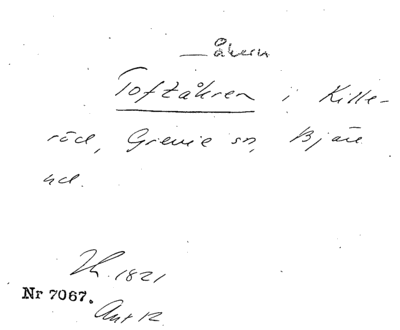 —åkern
Toftåkren i Kille-
röd, Grevie sn, Bjäre
hd.
Lh. 1821
Nr 7067.
Ant 12